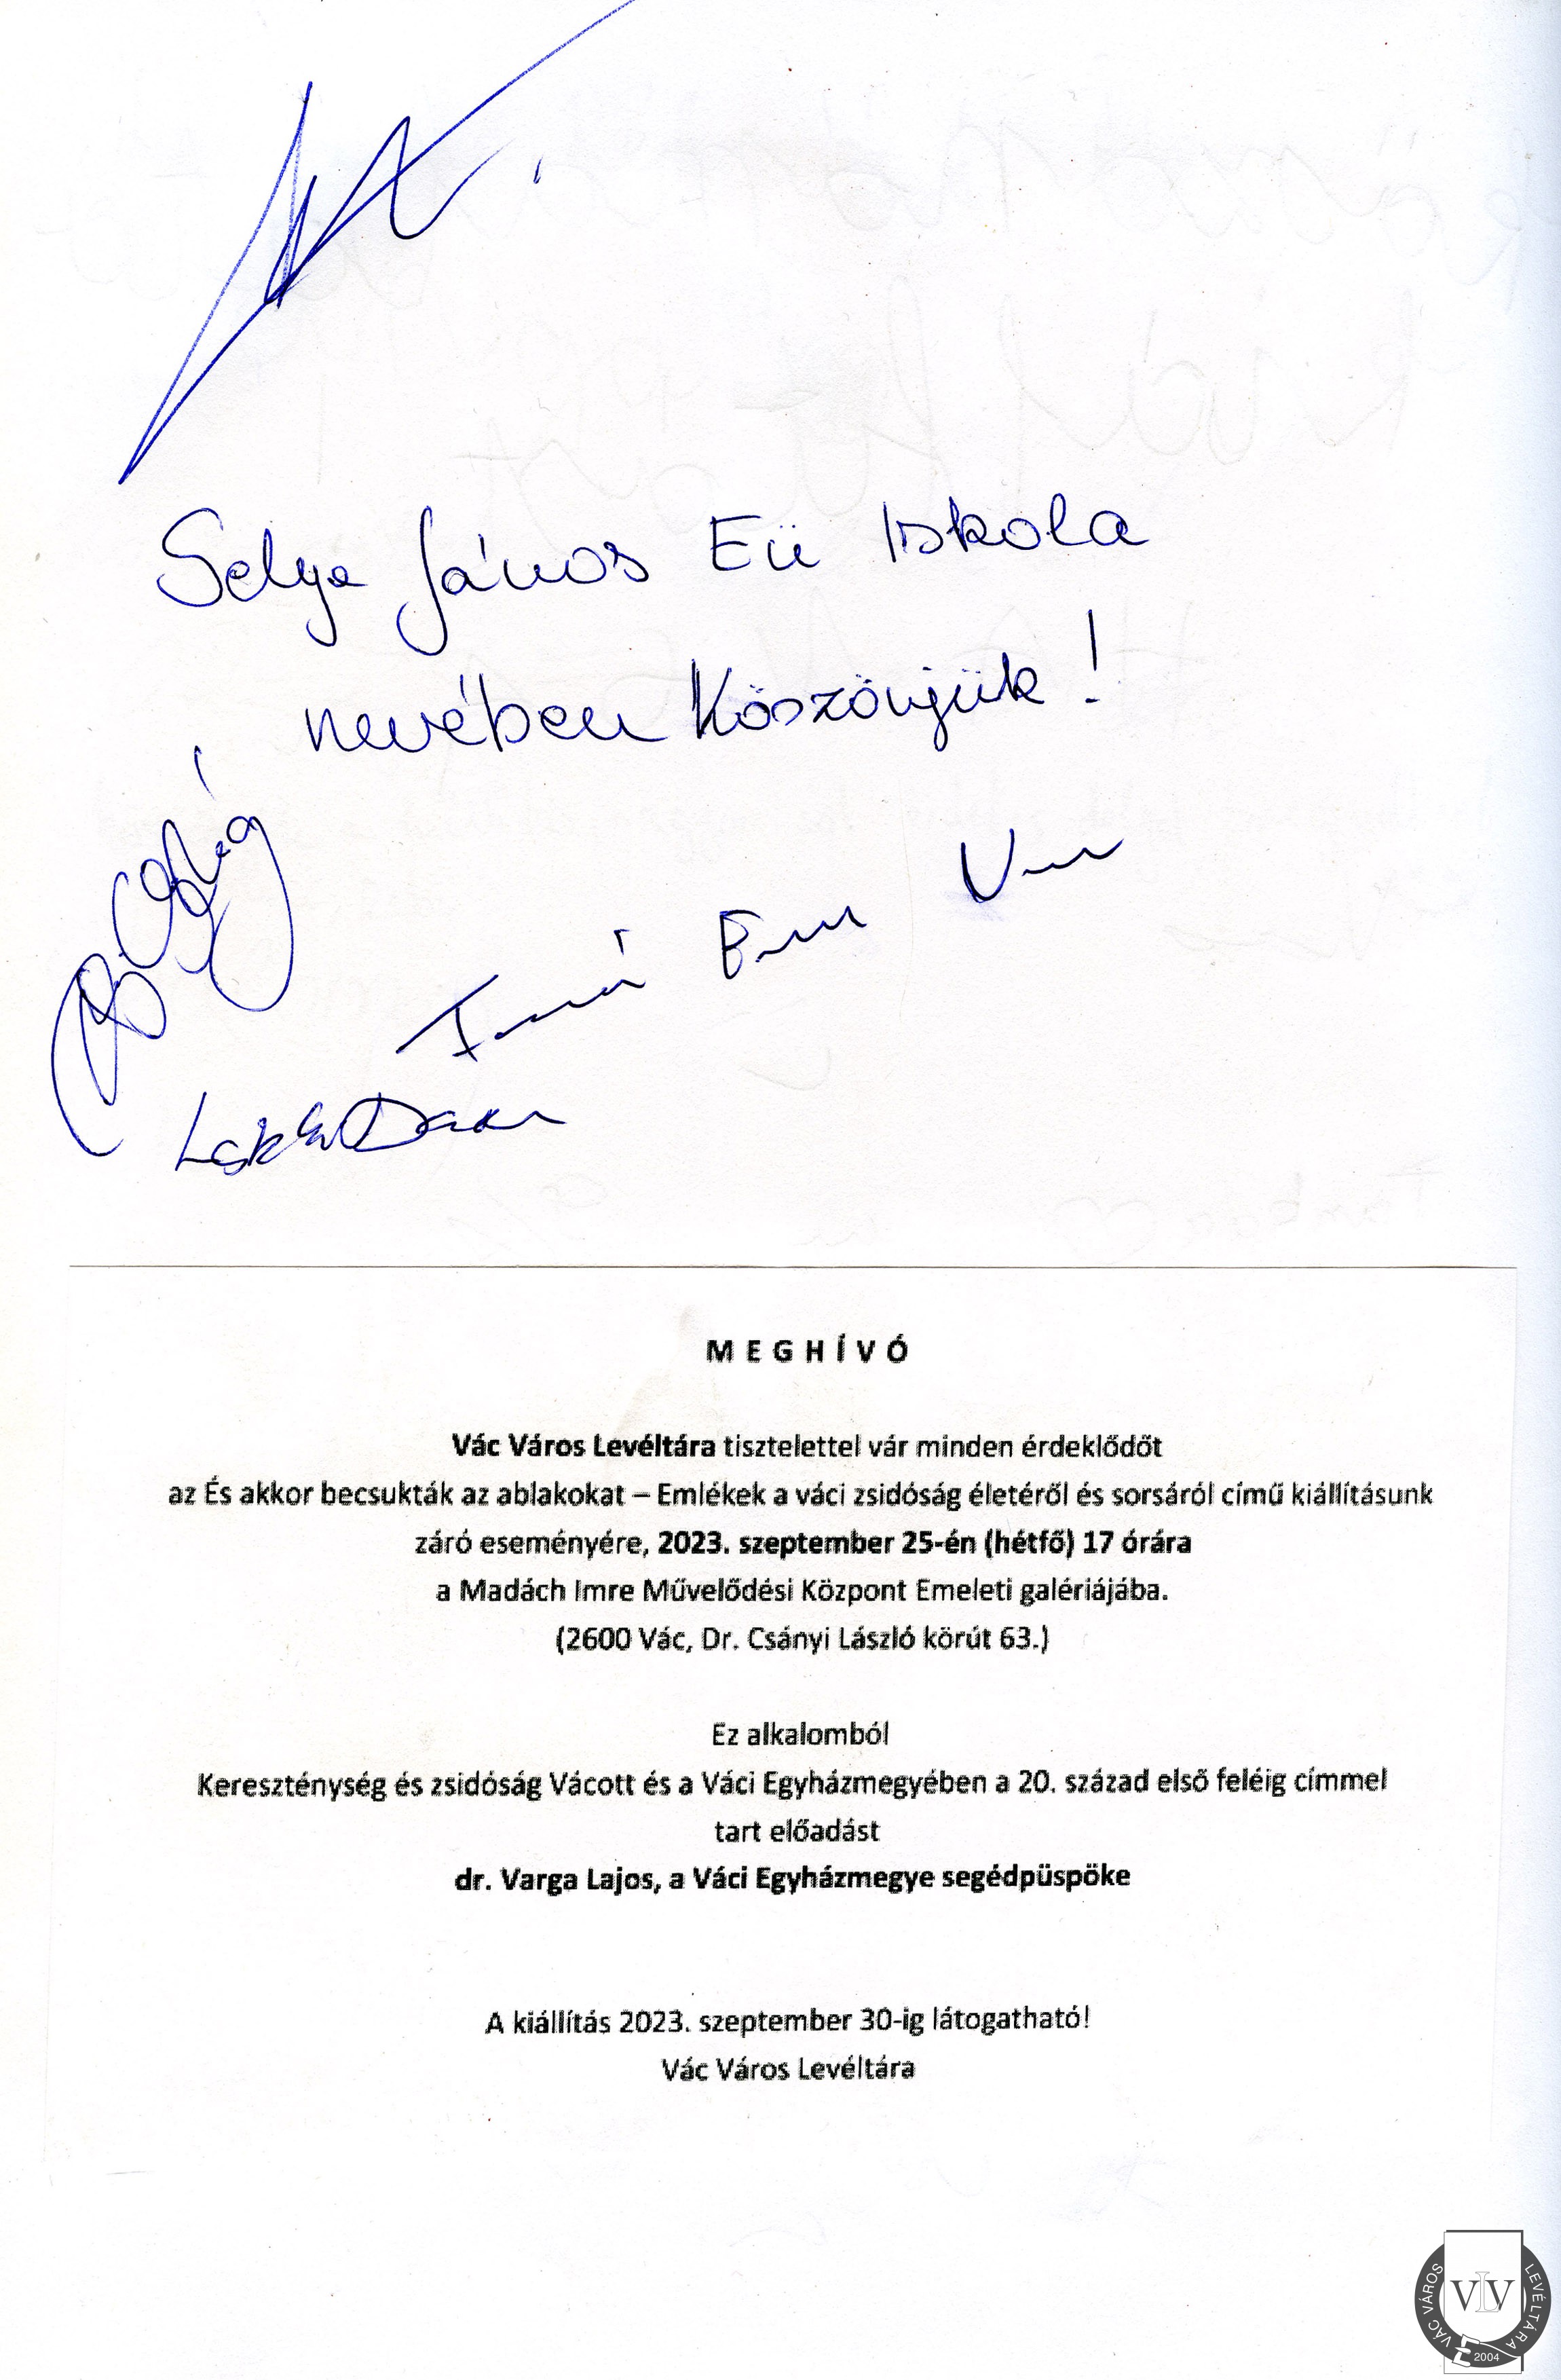 Selye János Eü Iskola
nevében Köszönjük!
MEGHÍVÓ
Vác Város Levéltára tisztelettel vár minden érdeklődőt
az És akkor becsukták az ablakokat – Emlékek a váci zsidóság életéről és sorsáról című kiállításunk
záró eseményére, 2023. szeptember 25-én (hétfő) 17 órára
a Madách Imre Művelődési Központ Emeleti galériájába.
(2600 Vác, Dr. Csányi László körút 63.)
Ez alkalomból
Kereszténység és zsidóság Vácott és a Váci Egyházmegyében a 20. század első feléig címmel
tart előadást
dr. Varga Lajos, a Váci Egyházmegye segédpüspöke
A kiállítás 2023. szeptember 30-ig látogatható!
Vác Város Levéltára
VÁC VÁROS LEVÉLTÁRA
VLV
2004